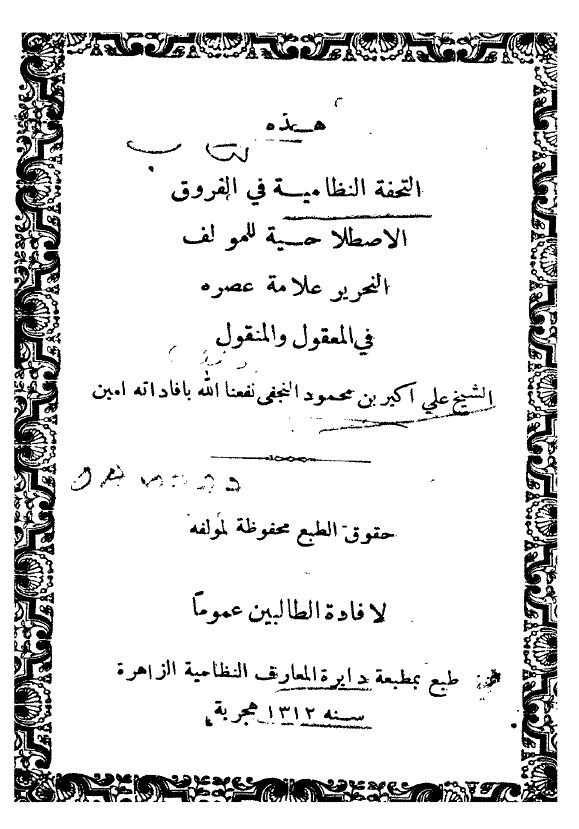 هــذه
كتاب
التحفة النظامية في الفروق
الاصطلاحية للمولف
النحرير علامة عصره
في المعقول والمنقول
الشيخ علي اكبر بن محمود النجفي نفعنا الله بافاداته امين
حقوق الطبع محفوظة لمولفه
لافادة الطالبين عموماً
طبع بمطبعة دايرة المعارف النظامية الزاهرة
سنه ١٣١٢ هجرية